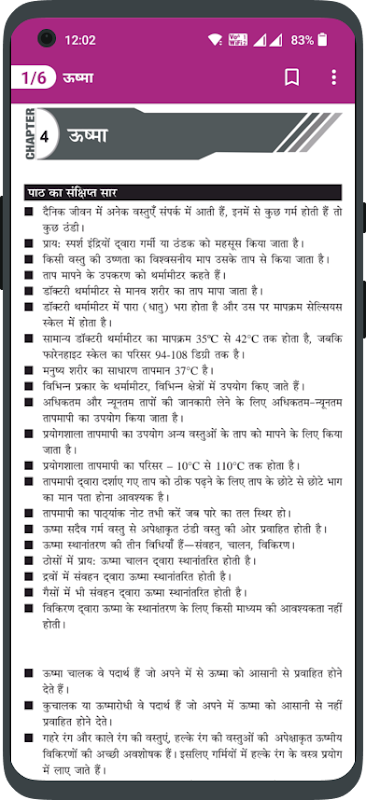 12:02
83%
1/6 ऊष्मा
CHAPTER
4 ऊष्मा
पाठ का संक्षिप्त सार
दैनिक जीवन में अनेक वस्तुएँ संपर्क में आती हैं, इनमें से कुछ गर्म होती हैं तो
कुछ ठंडी।
प्राय: स्पर्श इंद्रियों द्वारा गर्मी या ठंडक को महसूस किया जाता है।
किसी वस्तु की उष्णता का विश्वसनीय माप उसके ताप से किया जाता है।
ताप मापने के उपकरण को थर्मामीटर कहते हैं।
डॉक्टरी थर्मामीटर से मानव शरीर का ताप मापा जाता है।
डॉक्टरी थर्मामीटर में पारा (धातु) भरा होता है और उस पर मापक्रम सेल्सियस
स्केल में होता है।
सामान्य डॉक्टरी थर्मामीटर का मापक्रम 35°C से 42°C तक होता है, जबकि
फारेनहाइट स्केल का परिसर 94-108 डिग्री तक है।
मनुष्य शरीर का साधारण तापमान 37°C है।
विभिन्न प्रकार के थर्मामीटर, विभिन्न क्षेत्रों में उपयोग किए जाते हैं।
अधिकतम और न्यूनतम तापों की जानकारी लेने के लिए अधिकतम-न्यूनतम
तापमापी का उपयोग किया जाता है।
प्रयोगशाला तापमापी का उपयोग अन्य वस्तुओं के ताप को मापने के लिए किया
जाता है।
प्रयोगशाला तापमापी का परिसर – 10°C से 110°C तक होता है।
तापमापी द्वारा दर्शाए गए ताप को ठीक पढ़ने के लिए ताप के छोटे से छोटे भाग
का मान पता होना आवश्यक है।
तापमापी का पाठ्यांक नोट तभी करें जब पारे का तल स्थिर हो।
ऊष्मा सदैव गर्म वस्तु से अपेक्षाकृत ठंडी वस्तु की ओर प्रवाहित होती है।
ऊष्मा स्थानांतरण की तीन विधियाँ हैं—संवहन, चालन, विकिरण।
ठोसों में प्राय: ऊष्मा चालन द्वारा स्थानांतरित होती है।
द्रवों में संवहन द्वारा ऊष्मा स्थानांतरित होती है।
गैसों में भी संवहन द्वारा ऊष्मा स्थानांतरित होती है।
विकिरण द्वारा ऊष्मा के स्थानांतरण के लिए किसी माध्यम की आवश्यकता नहीं
होती।
ऊष्मा चालक वे पदार्थ हैं जो अपने में से ऊष्मा को आसानी से प्रवाहित होने
देते हैं।
कुचालक या ऊष्मारोधी वे पदार्थ हैं जो अपने में ऊष्मा को आसानी से नहीं
प्रवाहित होने देते।
गहरे रंग और काले रंग की वस्तुएं, हल्के रंग की वस्तुओं की अपेक्षाकृत ऊष्मीय
विकिरणों की अच्छी अवशोषक हैं। इसलिए गर्मियों में हल्के रंग के वस्त्र प्रयोग
में लाए जाते हैं।